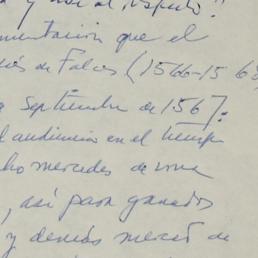 y así al respecto".
mentación que el
ués de Falces (1566-156
Septiembre de 1567:
l audiencia en el tiempo
cho mercedes de una
, así para ganados
y demás merced de